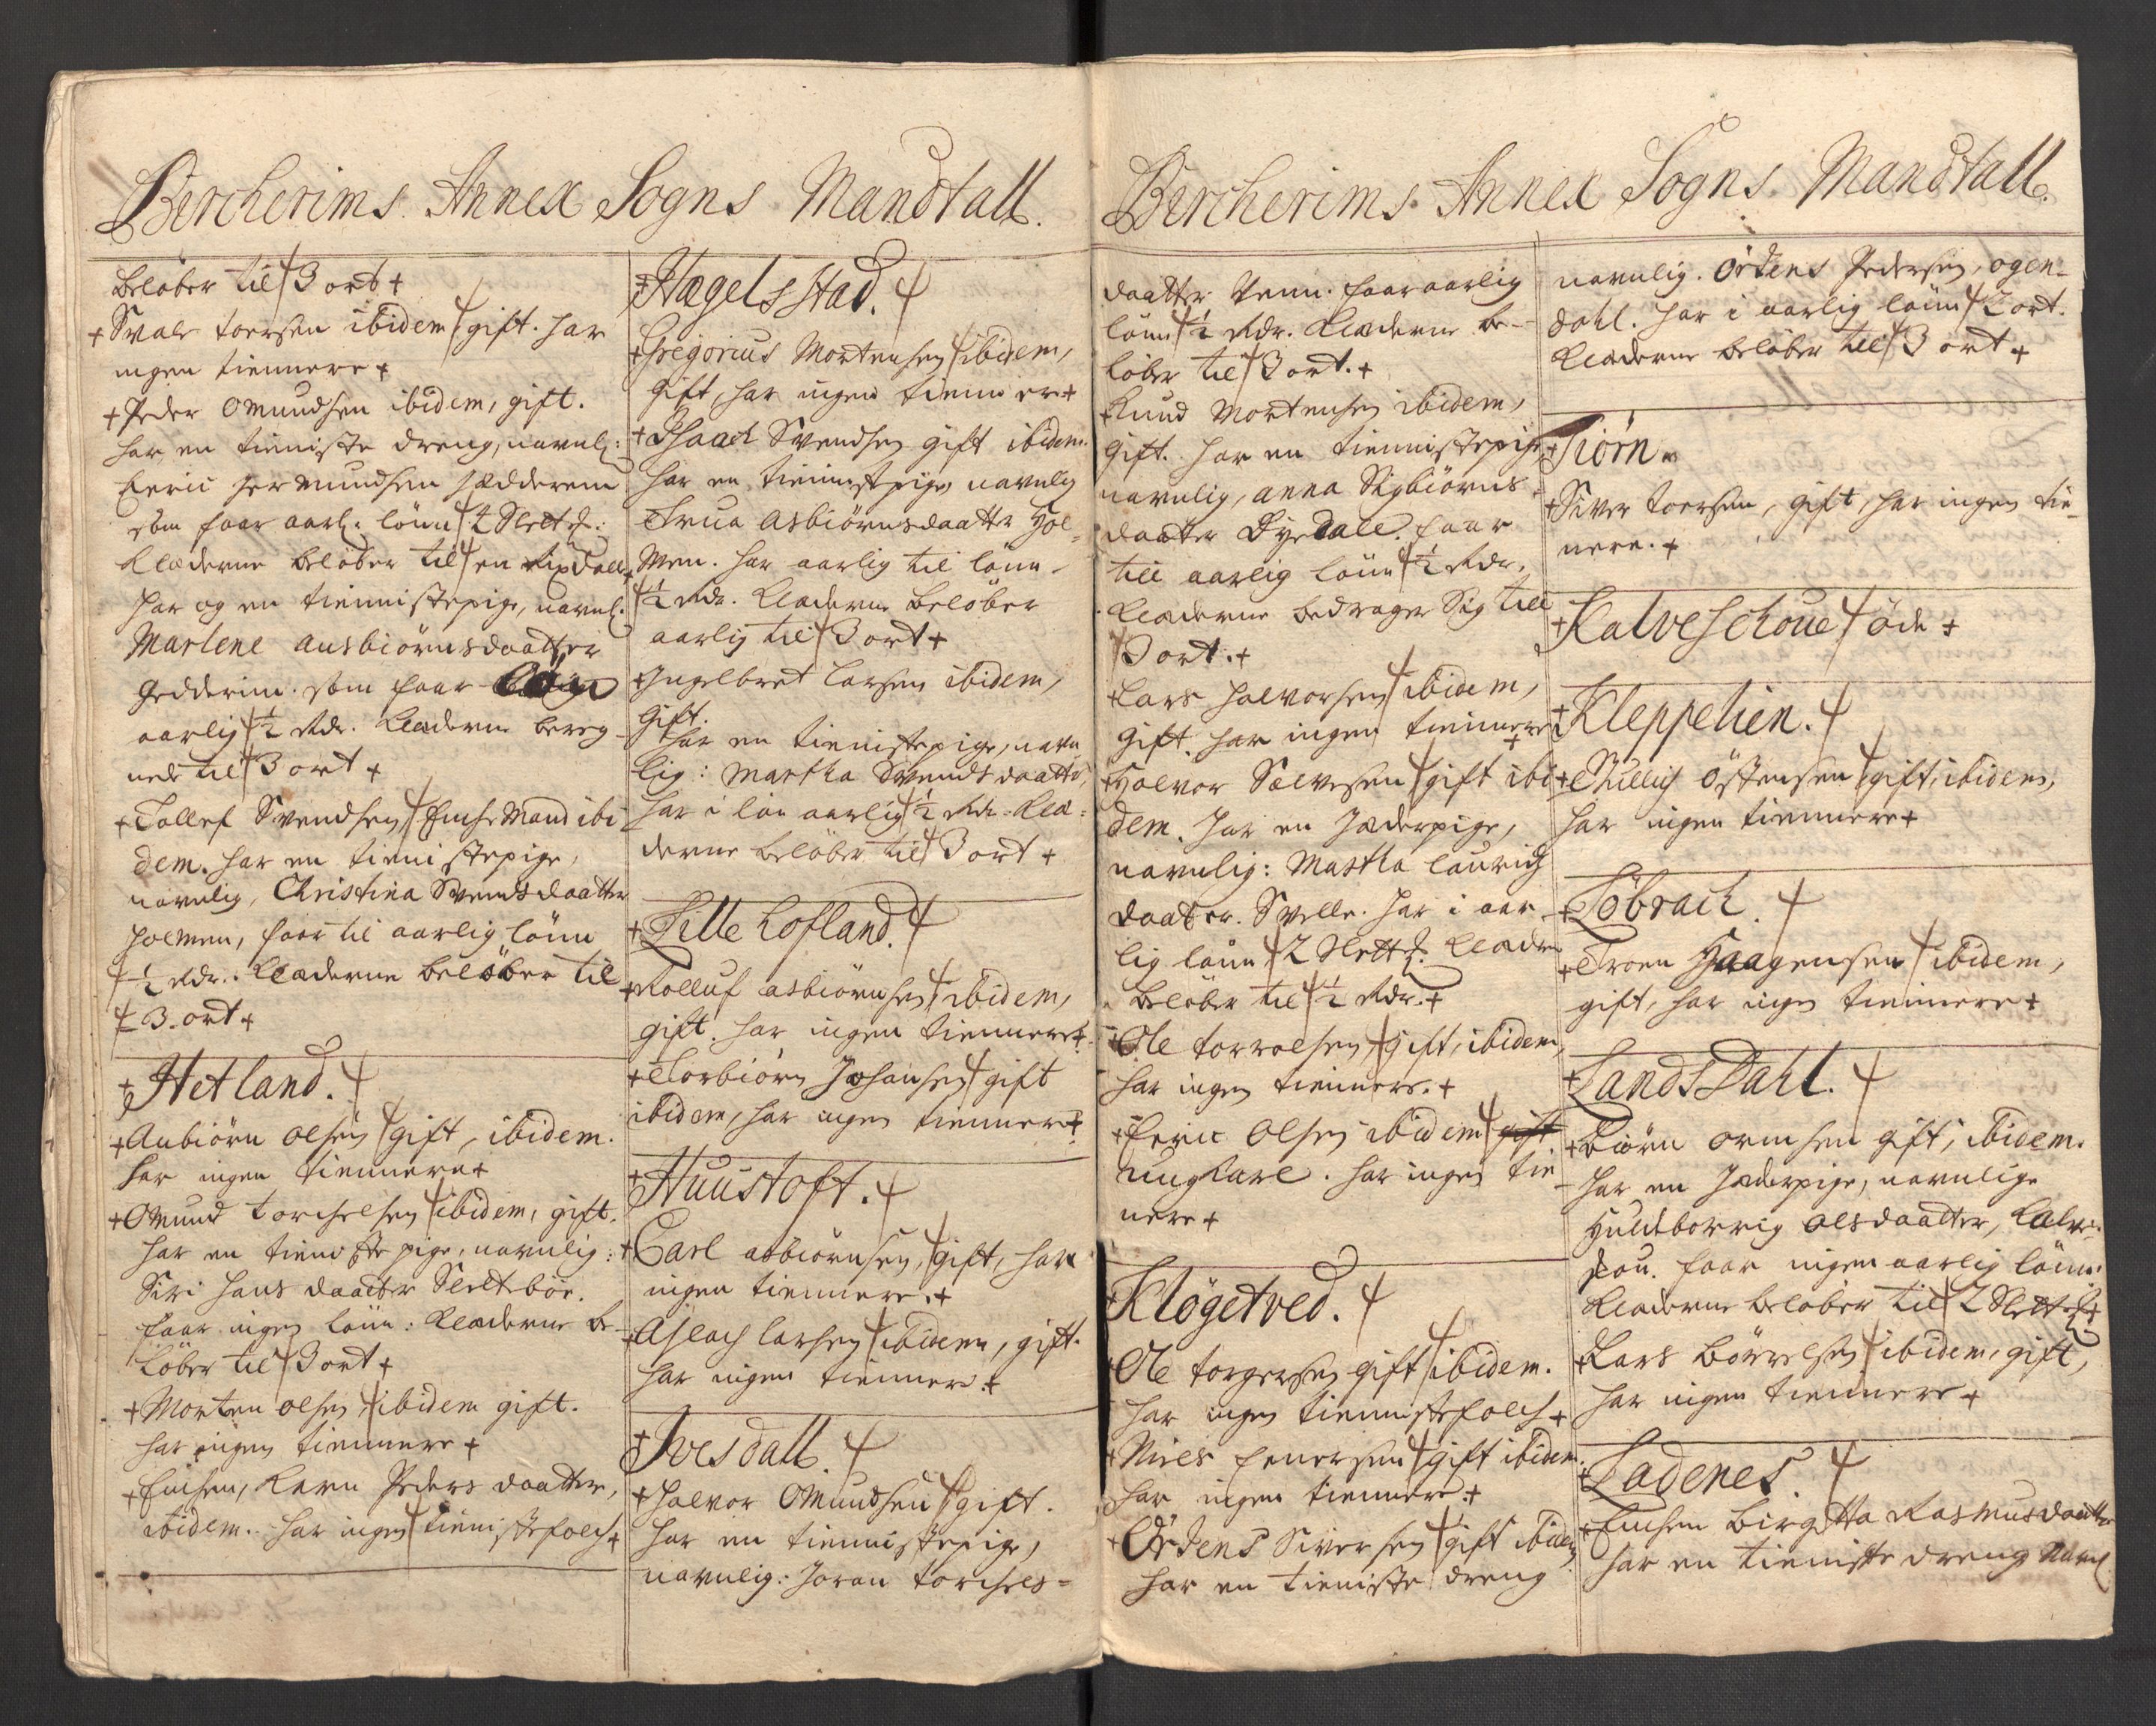 Bercherims Annex Sogns Mandtall.
beløber til 3 ort
Svale toersen ibidem gift. har
ingen tiennere
Peder Omundsen ibidem, gift.
har en tieniste dreng, navnl:
Eeric Hermundsen
som faar aarl: lönn 4 Slett d:
Klæderne beløber til en rixdaller
har og en tiennistepige, navnl:
Marlene ausbiörnsdaatter
Gedderim. som faar
aarlig ½ Rdr. Klæderne bereg-
nes til 3 ort
Tollef Svendsen Enche Mand ibi
dem. har en tienistepige,
navnlig, Christina Svendsdaatter
holmen, faar til aarlig lönn
½ Rdr. Klæderne beløber til
3. ort
Hetland.
Aubiörn olsen gift, ibidem.
har ingen tiennere
Omund torchelsen ibidem, gift.
har en tieniste pige, navnlig:
Siri hans daatter Slettebøe.
faar ingen lönn: Klæderne be-
løber til 3 ort
Morten olsen ibidem gift.
har ingen tiennere
Enchen, Karn Peders daatter,
ibidem. har ingen tienistefolch
Hægelsstad.
Gregorius Mortensen ibidem,
gift, har ingen tienner
Isaach Svendsen gift ibidem.
har en tienistpige navnlig
Trua Asbiörnsdaatter Hol-
men. har aarlig til lönn
½ Rdr. Klæderne beløber
aarlig til 3 ort
Ingelbret Larsen ibidem,
Gift.
har en tienistepige, navn
lig: Martha Svendsdaatter,
har i lön aarlig ½ Rdr. Klæ-
derne beløber til 3 ort
Lille Lofland.
Rolluf asbiörnsen ibidem,
gift. har ingen tiennere
Torbiörn Johansen gift
ibidem, har ingen tiennere
Huustoft.
Carl asbiörnsen, gift, har
ingen tiennere.
Aslach Larsen ibidem, gift.
har ingen tiennere.
Ivesdall.
Halvor Omundsen gift.
har en tiennistepige,
navnlig: Joran torchels-
Bercherims Annex Sogns Mandtall.
daatter faar aarlig
lönn ½ Rdr. Klæderne be-
løber til 3 ort.
Knud Mortensen ibidem,
gift. har en tiennistepige,
navnlig, anna Sigbiörns
daatter Dyedall. faar
till aarlig lönn ½ Rdr.
Klæderne bedrager sig till
3 ort.
Lars halvorsen ibidem,
gift. har ingen tiennere
Halvor Salvesen gift ibi
dem. har en Hæderpige,
navnlig: Martha Laurids
daatter. Svelle. har i aar-
lig lönn 2 Slett d: Klæder
beløber til ½ Rdr.
Ole torvolsen, gift, ibidem,
har ingen tiennere.
Eeric Olsen ibidem gift
ungkarl. har ingen tie-
nere
Klögetved.
Ole torgersen gift ibidem.
har ingen tiennistefolch
Niels Enersen gift ibidem.
har ingen tiennere.
Ördens Siversen gift ibidem
har en tieniste dreng
navnlig. Ördens Pedersen, ogen-
dahl. har i aarlig lönn 2 ort.
Klæderne beløber till 3 ort
Tiörn
Siver toersen, gift, har ingen tie-
nere.
Kalveschoue öde
Kleppelien.
Östensen gift, ibidem,
har ingen tiennere
Löbrach.
Troen Haagensen ibidem,
gift, har ingen tiennere
LandsDahl.
Biörn ormsen gift, ibidem.
har en Hæderpige, navnlige
Huldborrig olsdaatter, Kalve-
skou. faar ingen aarlig lönn.
Klæderne beløber til 2 Slett d:
Lars Börrelsen ibidem, gift,
har ingen tiennere
Ladenes.
Enchen Birgitta Rasmusdaatter
har en tieniste dreng Navnl